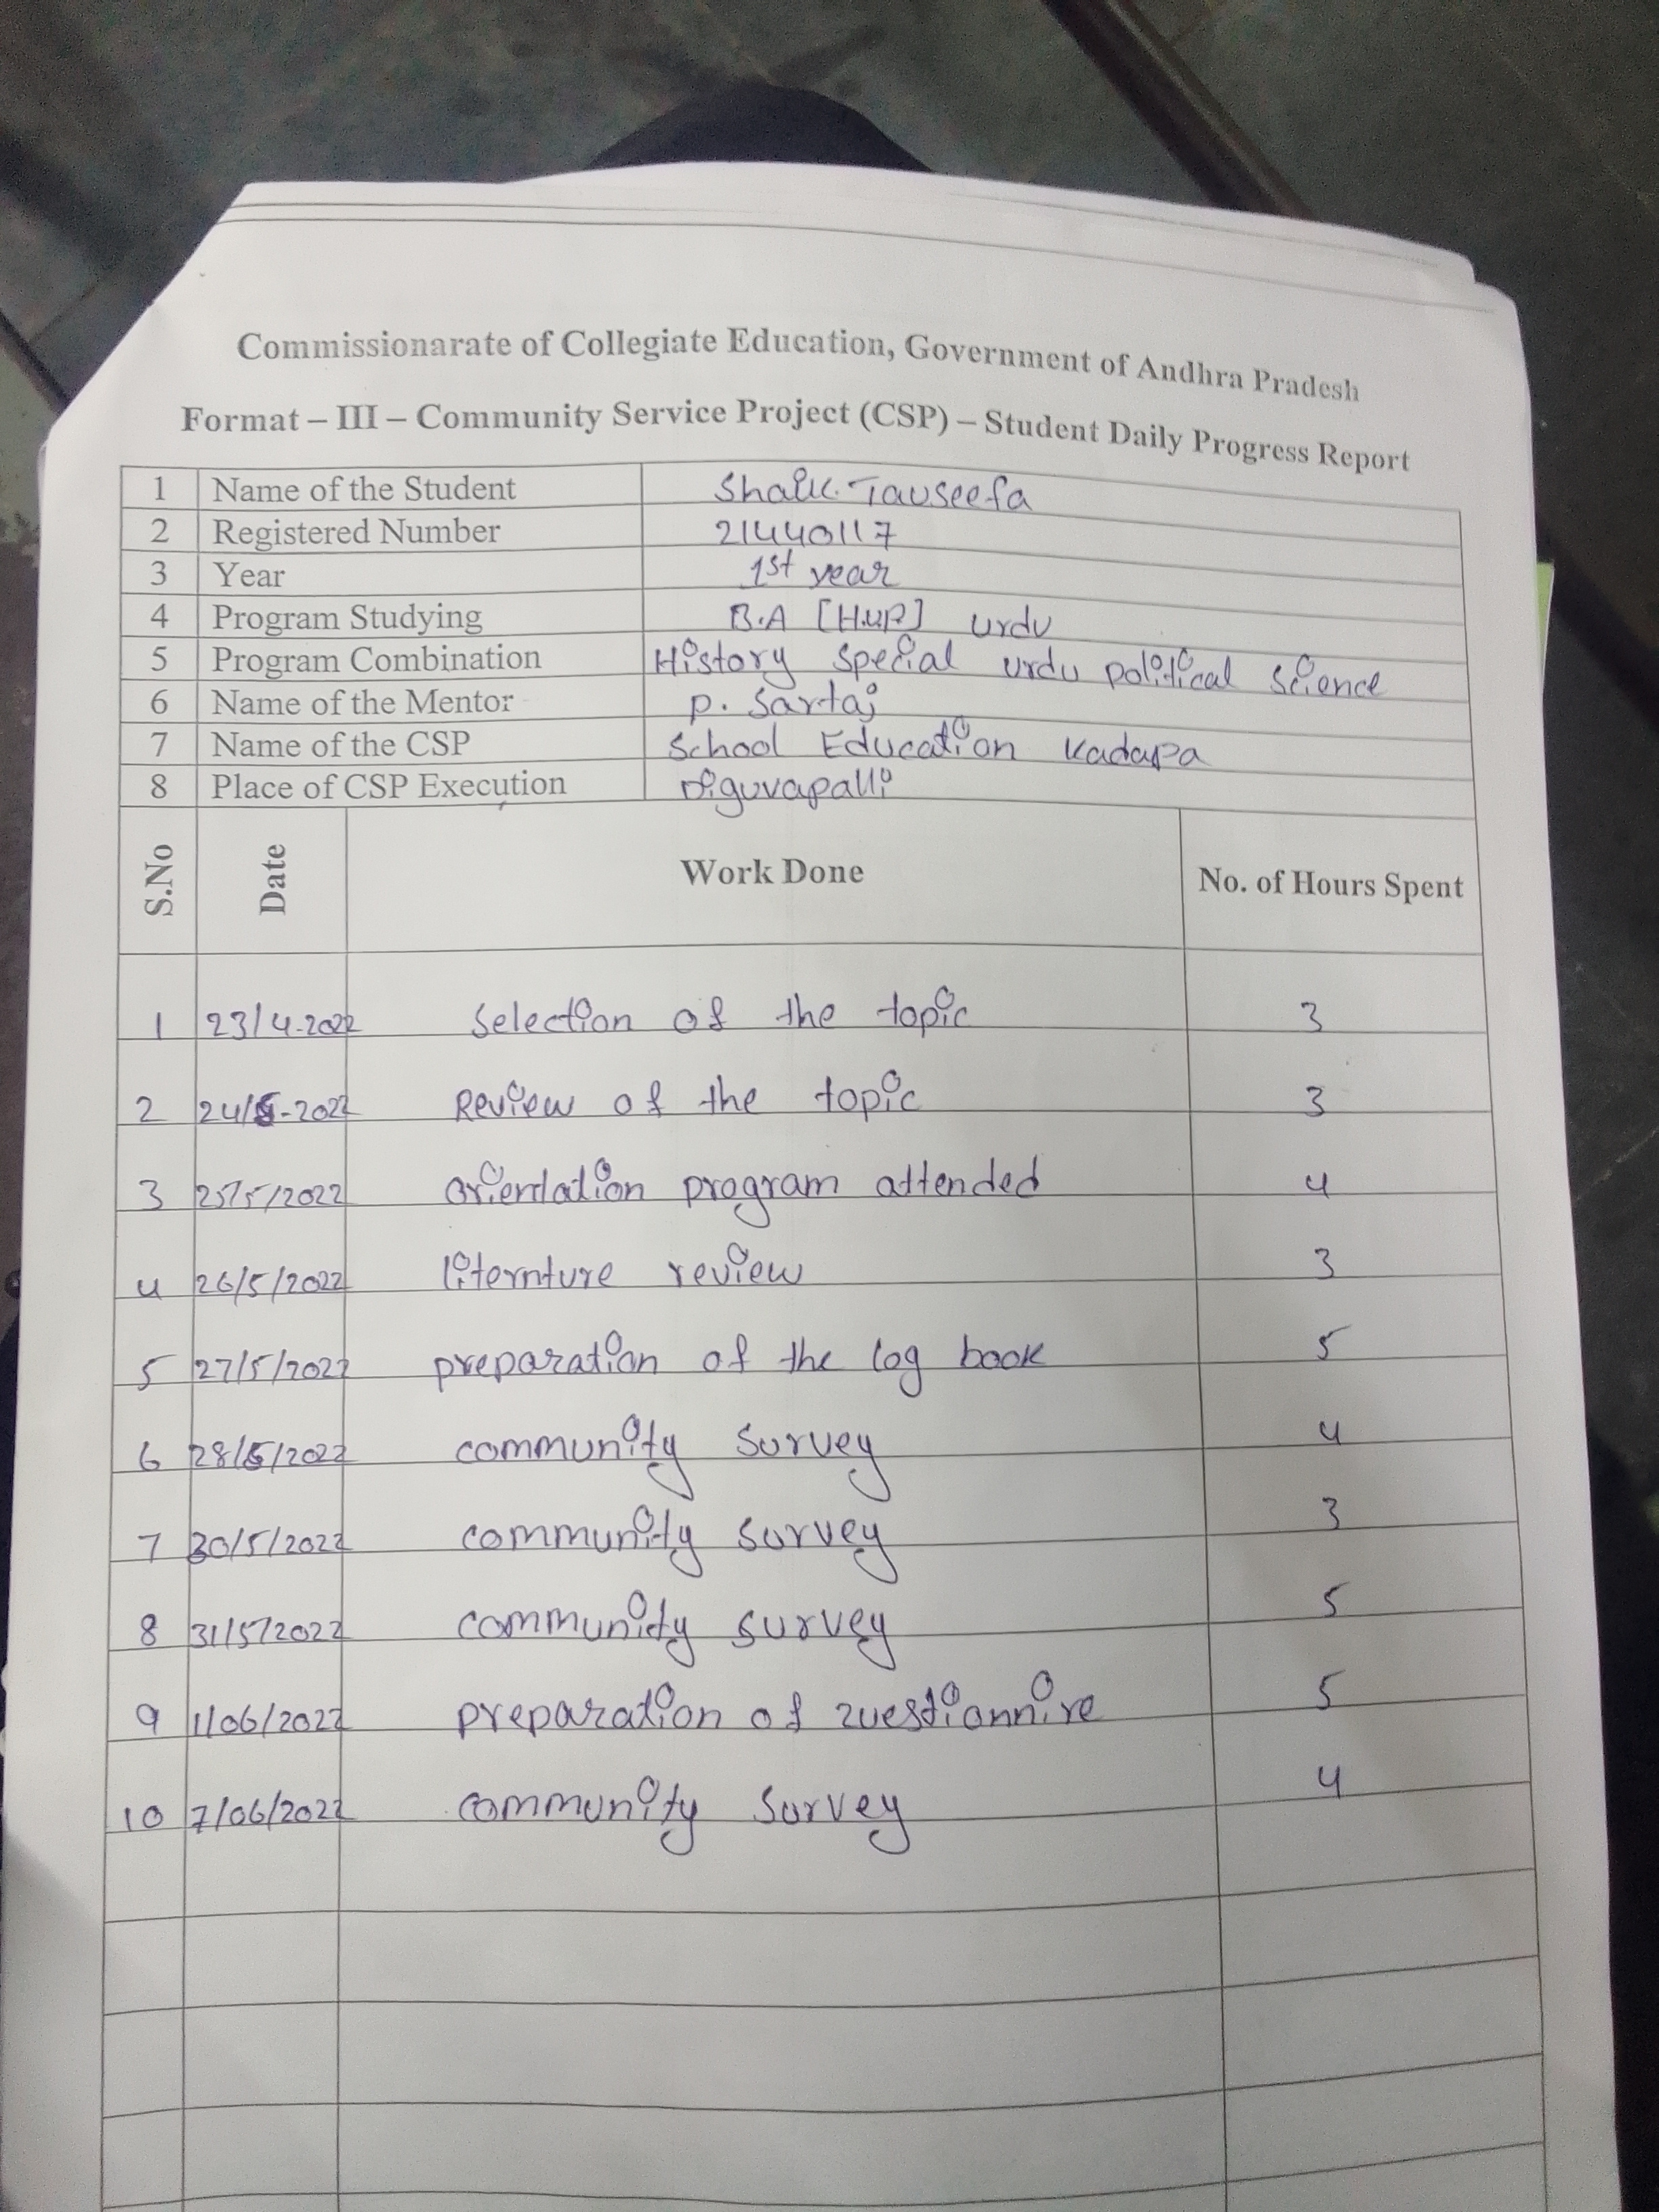 Commissionarate of Collegiate Education, Government of Andhra Pradesh
Format – III – Community Service Project (CSP) – Student Daily Progress Report
1 Name of the Student Shaik. Tauseefa
2 Registered Number 21440117
3 Year 1st year
4 Program Studying B.A [H.U.P] urdu
5 Program Combination History special urdu political science
6 Name of the Mentor P. Sartaj
7 Name of the CSP School Education Kadapa
8 Place of CSP Execution Diguvapalli
S.No Date Work Done No. of Hours Spent
1 23/4-2022 selection of the topic 3
2 24/5-2022 Review of the topic 3
3 25/5/2022 orientation program attended 4
4 26/5/2022 liternture review 3
5 27/5/2022 preparation of the log book 5
6 28/5/2022 community survey 4
7 30/5/2022 community survey 3
8 31/5/2022 community survey 5
9 1/06/2022 preparation of questionnire 5
10 7/06/2022 community survey 4